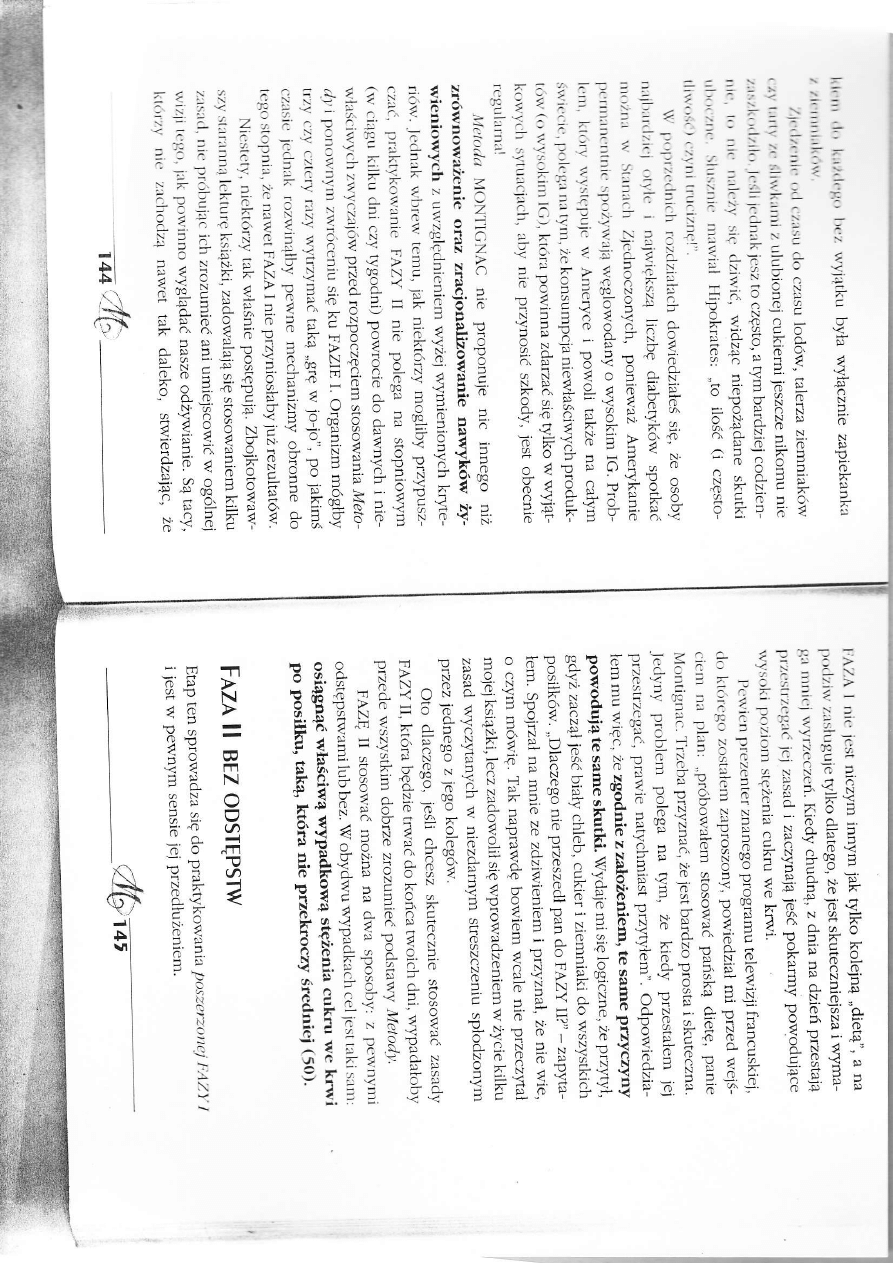 kiem do każdego bez wyjątku była wyłącznie zapiekanka
z ziemniaków.
Zjedzenie od czasu do czasu lodów, talerza ziemniaków
czy tarty ze śliwkami z ulubionej cukierni jeszcze nikomu nie
zaszkodziło. Jeśli jednak jesz to często, a tym bardziej codzien-
nie, to nie należy się dziwić, widząc niepożądane skutki
uboczne. Słusznie mawiał Hipokrates: „to ilość (i często-
tliwość) czyni truciznę!”.
W poprzednich rozdziałach dowiedziałeś się, że osoby
najbardziej otyłe i największą liczbę diabetyków spotkać
można w Stanach Zjednoczonych, ponieważ Amerykanie
permanentnie spożywają węglowodany o wysokim IG. Prob-
lem, który występuje w Ameryce i powoli także na całym
świecie, polega na tym, że konsumpcja niewłaściwych produk-
tów (o wysokim IG), która powinna zdarzać się tylko w wyjąt-
kowych sytuacjach, aby nie przynosić szkody, jest obecnie
regularna!
Metoda MONTIGNAC nie proponuje nic innego niż
zrównoważenie oraz zracjonalizowanie nawyków ży-
wieniowych z uwzględnieniem wyżej wymienionych kryte-
riów. Jednak wbrew temu, jak niektórzy mogliby przypusz-
czać, praktykowanie FAZY II nie polega na stopniowym
(w ciągu kilku dni czy tygodni) powrocie do dawnych i nie-
właściwych zwyczajów przed rozpoczęciem stosowania Meto-
dy i ponownym zwróceniu się ku FAZIE I. Organizm mógłby
trzy czy cztery razy wytrzymać taką „grę w jo-jo”, po jakimś
czasie jednak rozwinąłby pewne mechanizmy obronne do
tego stopnia, że nawet FAZA I nie przyniosłaby już rezultatów.
Niestety, niektórzy tak właśnie postępują. Zbojkotowaw-
szy staranną lekturę książki, zadowalają się stosowaniem kilku
zasad, nie próbując ich zrozumieć ani umiejscowić w ogólnej
wizji tego, jak powinno wyglądać nasze odżywianie. Są tacy,
którzy nie zachodzą nawet tak daleko, stwierdzając, że
144 M
FAZA I nie jest niczym innym jak tylko kolejną „dietą”, a na
podziw zasługuje tylko dlatego, że jest skuteczniejsza i wyma-
ga mniej wyrzeczeń. Kiedy chudną, z dnia na dzień przestają
przestrzegać jej zasad i zaczynają jeść pokarmy powodujące
wysoki poziom stężenia cukru we krwi.
Pewien prezenter znanego programu telewizji francuskiej,
do którego zostałem zaproszony, powiedział mi przed wejś-
ciem na plan: „próbowałem stosować pańską dietę, panie
Montignac. Trzeba przyznać, że jest bardzo prosta i skuteczna.
Jedyny problem polega na tym, że kiedy przestałem jej
przestrzegać, prawie natychmiast przytyłem”. Odpowiedzia-
łem mu więc, że zgodnie z założeniem, te same przyczyny
powodują te same skutki. Wydaje mi się logiczne, że przytył,
gdyż zaczął jeść biały chleb, cukier i ziemniaki do wszystkich
posiłków. „Dlaczego nie przeszedł pan do FAZY II?” – zapyta-
łem. Spojrzał na mnie ze zdziwieniem i przyznał, że nie wie,
o czym mówię. Tak naprawdę bowiem wcale nie przeczytał
mojej książki, lecz zadowolił się wprowadzeniem w życie kilku
zasad wyczytanych w niezdarnym streszczeniu spłodzonym
przez jednego z jego kolegów.
Oto dlaczego, jeśli chcesz skutecznie stosować zasady
FAZY II, która będzie trwać do końca twoich dni, wypadałoby
przede wszystkim dobrze zrozumieć podstawy Metody.
FAZĘ II stosować można na dwa sposoby: z pewnymi
odstępstwami lub bez. W obydwu wypadkach cel jest taki sam:
osiągnąć właściwą wypadkową stężenia cukru we krwi
po posiłku, taką, która nie przekroczy średniej (50).
FAZA II BEZ ODSTĘPSTW
Etap ten sprowadza się do praktykowania poszerzonej FAZY I
i jest w pewnym sensie jej przedłużeniem.
M 145